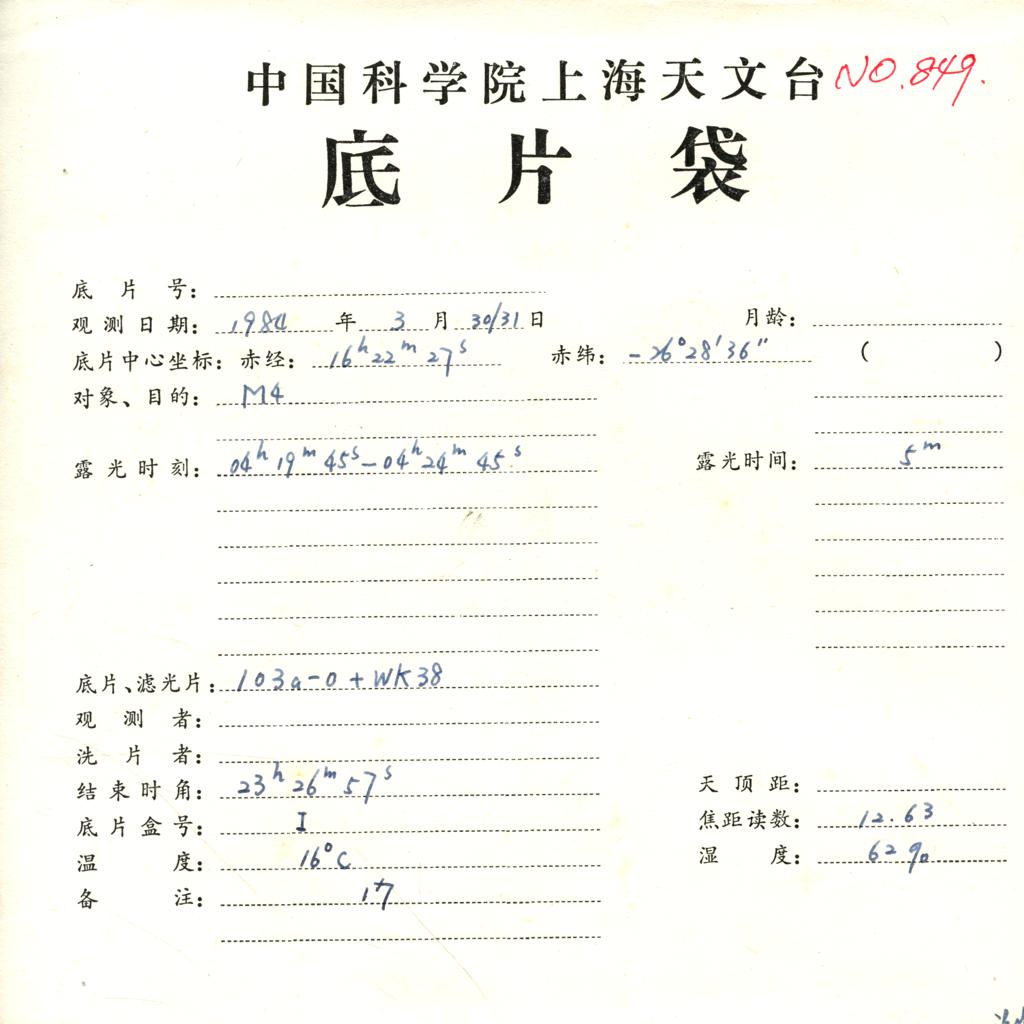 中国科学院上海天文台 NO.849.
底片袋
底片号:
观测日期: 1984 年 3 月 30/31 日 月龄:
底片中心坐标: 赤经: 16h22m27s 赤纬: -26°28'36" ( )
对象、目的: M4
露光时刻: 04h19m45s-04h24m45s 露光时间: 5m
底片、滤光片: 103a-O+WK38
观测者:
洗片者:
结束时角: 23h26m57s 天顶距:
底片盒号: I 焦距读数: 12.63
温度: 16°C 湿度: 62%
备注: